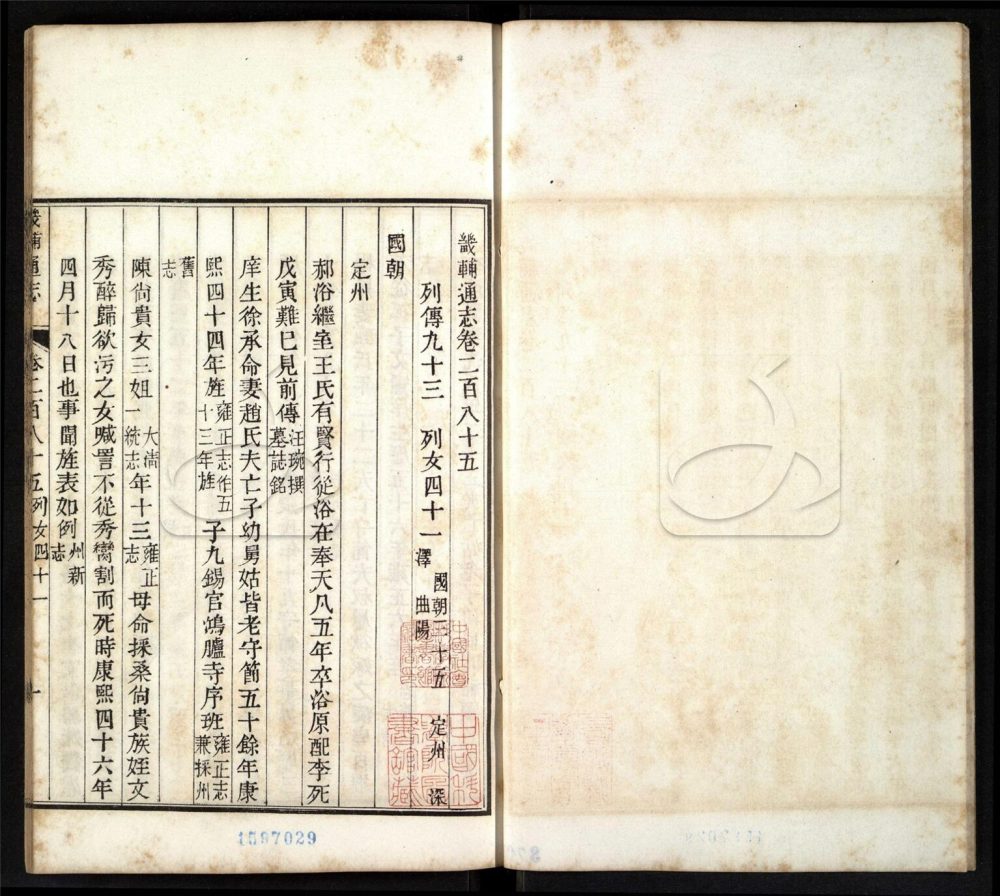 畿輔通志卷二百八十五
列傳九十三 列女四十一 國朝三十五 定州 深澤 曲陽
國朝
定州
郝浴繼室王氏有賢行從浴在奉天凡五年卒浴原配李死
戊寅難已見前傳汪琬撰墓誌銘
庠生徐承命妻趙氏夫亡子幼舅姑皆老守節五十餘年康
熙四十四年旌雍正志作五十三年旌子九錫官鴻臚寺序班雍正志兼採州
舊志
陳尚貴女三姐大清一統志年十三雍正志母命採桑尚貴族姪文
秀醉歸欲污之女喊詈不從秀臠割而死時康熙四十六年
四月十八日也事聞旌表如例州新志
畿輔通志 卷二百八十五 列女四十一
中國科
學院圖
書館藏
1597029